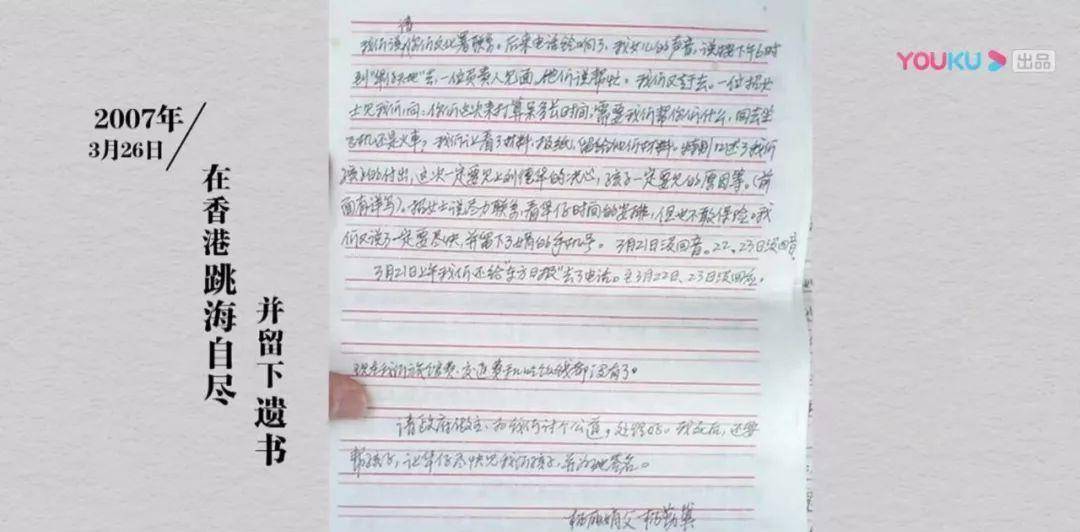 YOUKU 出品
2007年
3月26日
在香港跳海自尽
并留下遗书
请
我们说你们文化署联系。后来电话给响了，我女儿的声音，误接下午6时
到“华仔天地”去，一位负责人见面，他们说帮忙。我们又赶去。一位招女
士见我们，问：你们这次来打算呆多长时间，需要我们帮你们什么，回去坐
飞机还是火车？我们让看了材料、报纸，留给他们材料。特别口述了我们
孩子的付出，这次一定要见上刘德华的决心，孩子一定要见的原因等。（前
面有详写）。招女士说尽力联系，看华仔时间的安排，但也不敢保险。我
们又说了一定要尽快，并留下了娟的手机号。3月21日没回音。22、23日没回音
3月21日上午我们还给“东方日报”去了电话。至3月22日、23日没回应。
现在我们旅住费、交通费和吃饭钱都没有了。
请政府做主，为我们讨个公道，处理好。我死后，还要
帮孩子，让华仔尽快见我们孩子，并给她签名。
杨丽娟父 杨勤冀